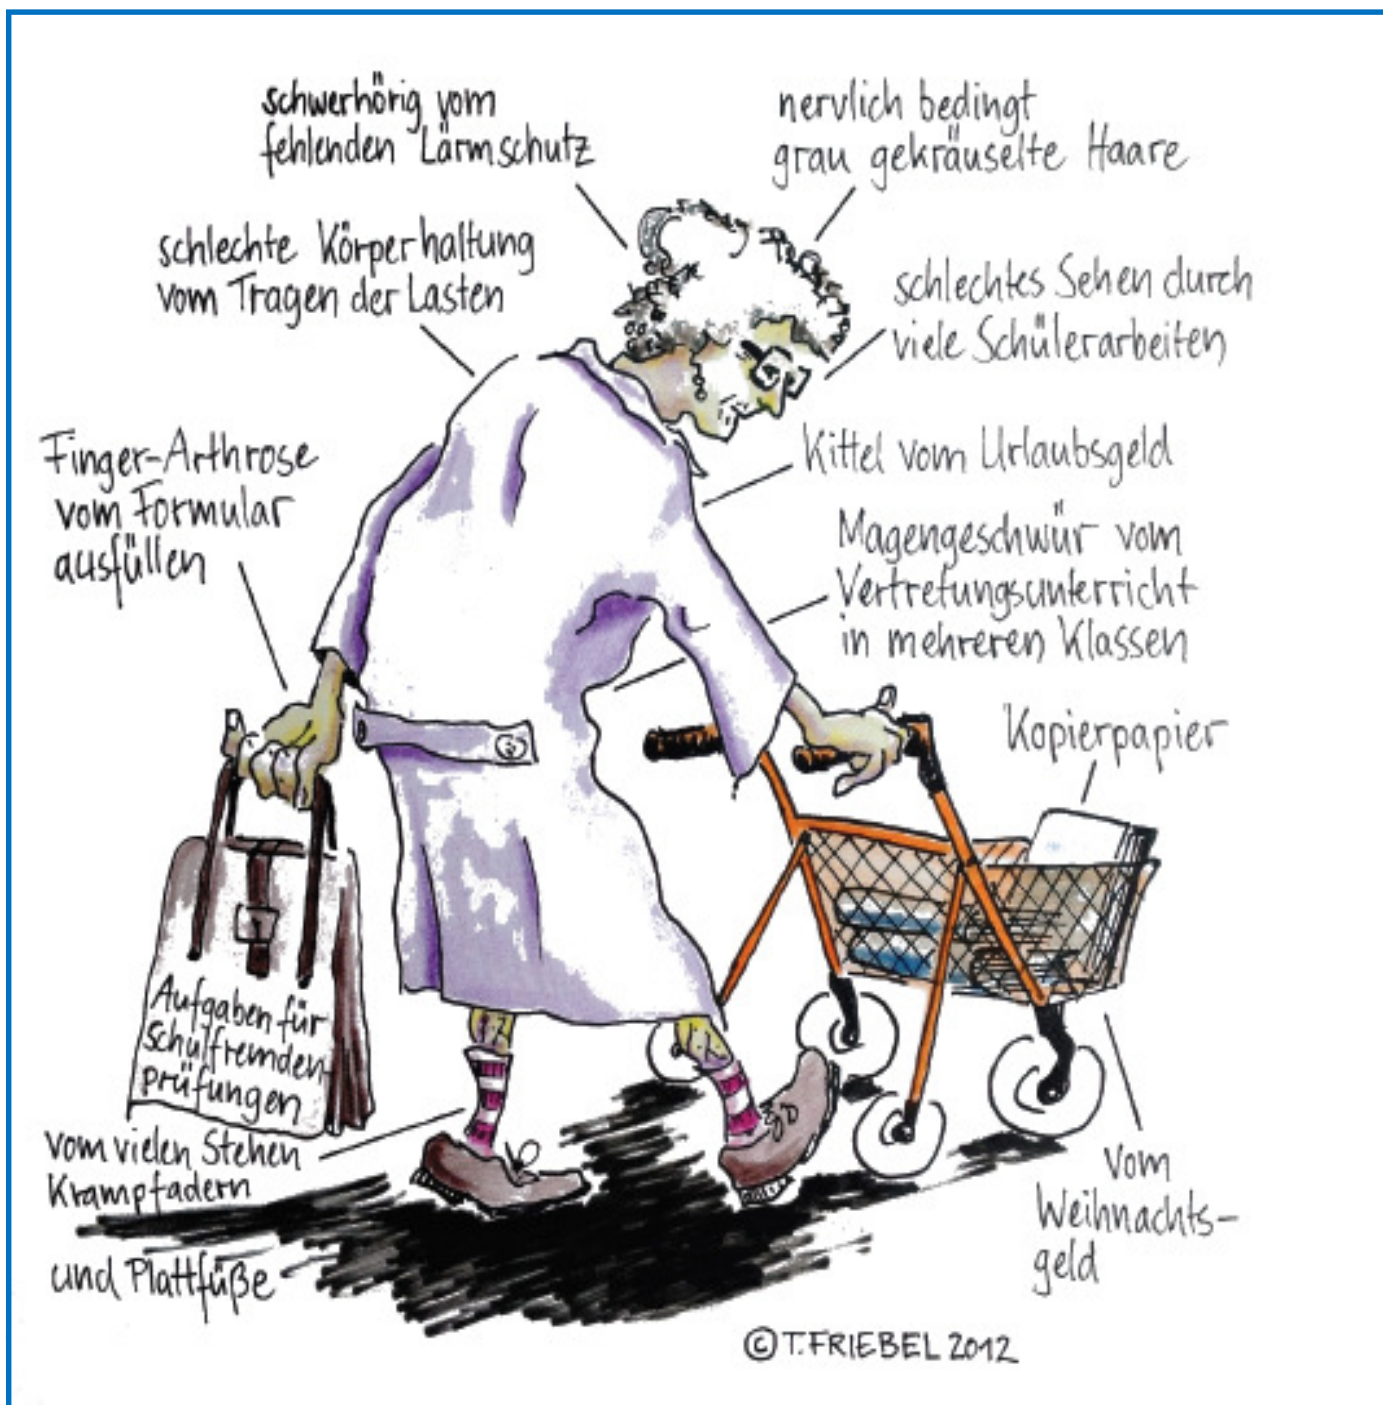 schwerhörig vom
fehlenden Lärmschutz
nervlich bedingt
grau gekräuselte Haare
schlechte Körperhaltung
vom Tragen der Lasten
schlechtes Sehen durch
viele Schülerarbeiten
Finger-Arthrose
vom Formular
ausfüllen
Kittel vom Urlaubsgeld
Magengeschwür vom
Vertretungsunterricht
in mehreren Klassen
Kopierpapier
Aufgaben für
Schulfremden-
prüfungen
vom vielen Stehen
Krampfadern
und Plattfüße
vom
Weihnachts-
geld
© T. FRIEBEL 2012